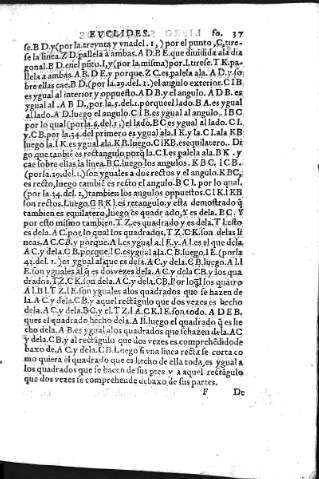 EVCLIDES. fo. 37
se.B D.y(por la.treynta y vna del.1,) por el punto ,C,tire-
se la linea.Z D.pallela à ambas.A D.B E.que diuidida ala dia
gonal.B D.en el púto.I,y(por la misma)por.I.tirese.T.K.pa-
llela a ambas.A B.D E.y porque.Z C.es palela ala.A D.y so
bre ellas cae.B D.(por la.29.del.1.)el angulo exterior.C I B
es ygual al interior y oppuesto.A D B.y el angulo.A D B.es
ygual al.A B D.,por la.5.del.1.porque el lado.B A.es ygual
al lado.A D.luego el angulo.C I B.es ygual al angulo.I B C
por lo qual(por la.6.del.1.)el lado.B C.es ygual al lado.C I.
y.C B.por la.34.del primero es ygual ala.I K.y la.C I.ala.K B
luego la.I K.es ygual ala.K B.luego.C I K B.es equilatero. Di
go que tambiẽ es rectangulo porq̃ la.C I.es palela ala.B K . y
cae sobre ellas la linea.B C.luego los angulos.K B C. I C B-
(por la.29.del.1.)son yguales a dos rectos y el angulo.K B C,
es recto,luego tambiẽ es recto el angulo.B C I.por lo qual.
(por la.34. del. 1,)tambien los angulos oppuestos.C I K.I K B
son rectos.Luego.C B K I.es retangulo:y esta demostrado q̃
tambien es equilatero,luego es quadrado,Y es dela.BC. Y
por esto mismo tambien.T Z.es quadrado y es dela.T I.esto
es dela.A C.por lo qual los quadrados.T Z.C K.son delas li
neas.A C.C B.y porque.A I.es ygual a.I E.y.A I.es el que dela.
A C.y dela.C B.porque.I C.es ygual ala.C B.luego.I E.(por la
43.del.1.)es ygual al que es dela.A C.y dela.C B.luego.A I.I
E.son yguales al q̃ es dos vezes dela.A C.y dela C B.y los qua
drados.T Z.C K.son dela.A C.y dela.C B.Por loq̃l los quatro
A I.B I.T Z.I E.son yguales alos quadrados que se hazen de
la.A C.y dela.C B.y aquel rectãgulo que dos vezes es hecho
dela.A C.y dela.B C.y el.T Z.I A.C K.I E.son todo. A D E B.
ques el quadrado hecho dela.A B.luego el quadrado q̃ es he
cho dela.A B.es ygual alos quadrados que sehazen dela.AC
y dela.C B.y al rectãgulo que dos vezes es comprehẽdido de
baxo de.A C.y dela.C B.Luego si vna linea recta se corta co
mo quiera el quadrado que es hecho de ella toda,es ygual a
los quadrados que se hazen de sus ptes y a aquel rectãgulo
que dos vezes se comprehende debaxo de sus partes.
F De